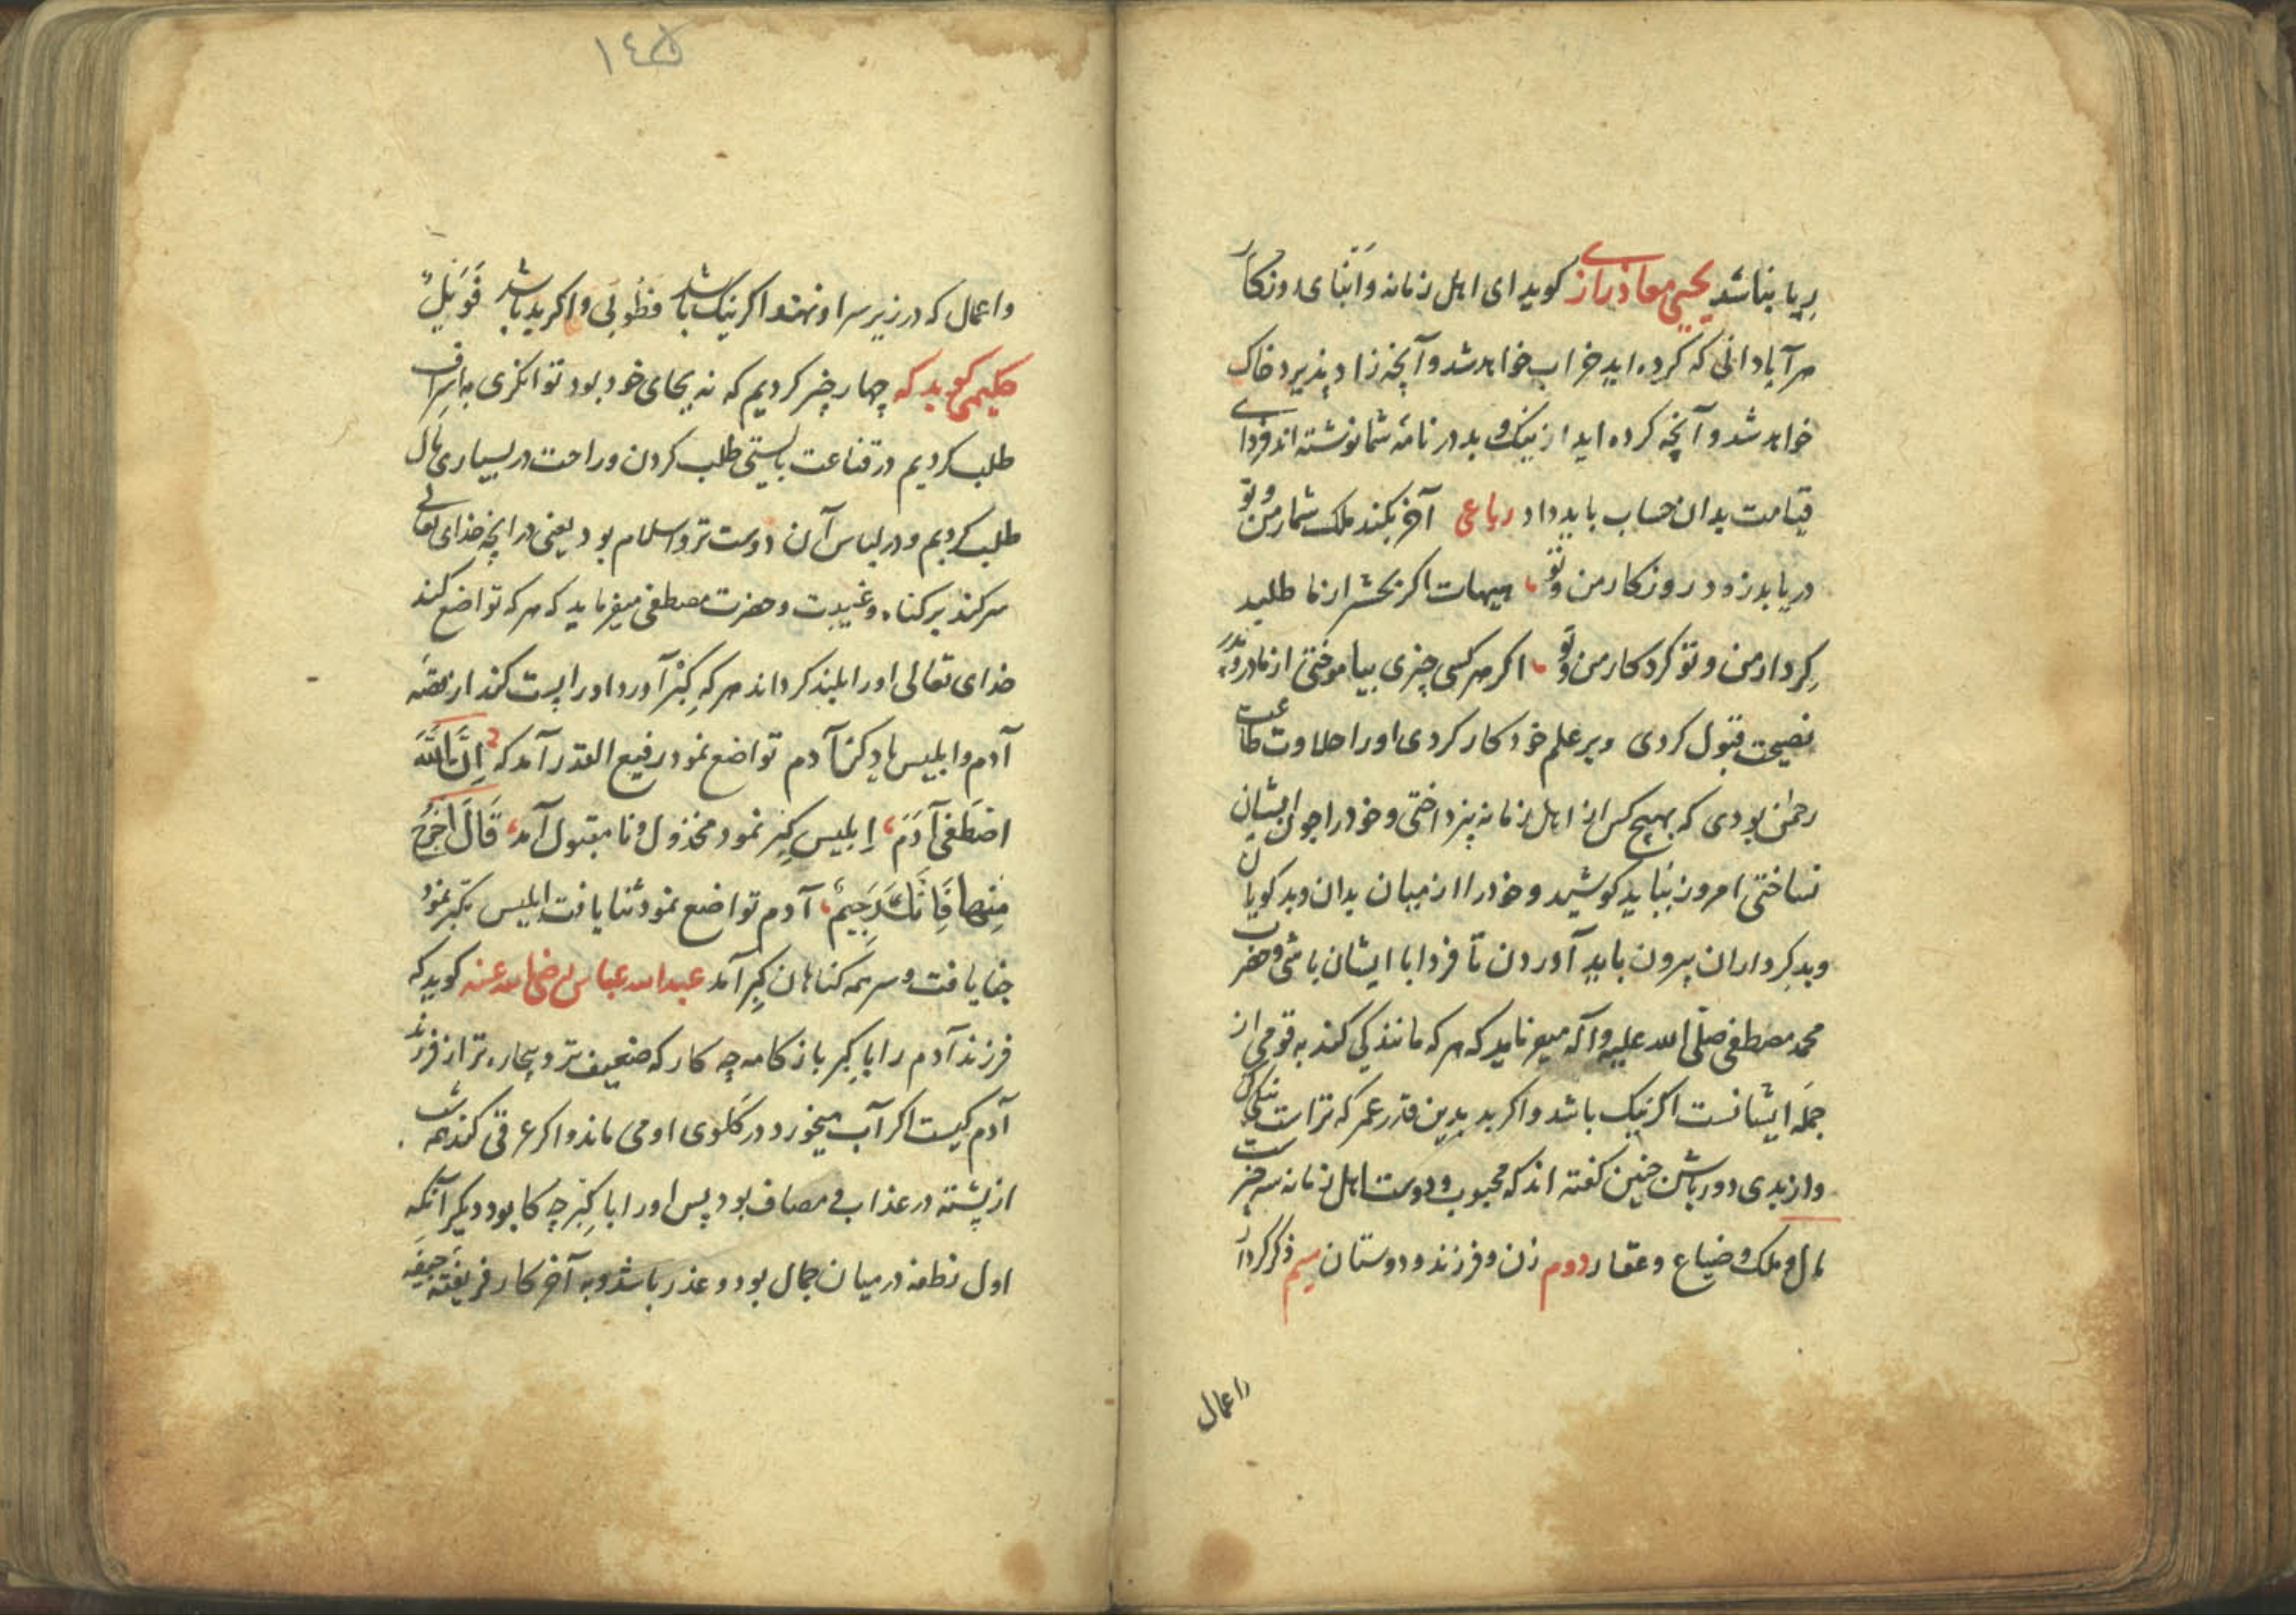 بریا بناشد یحیی معاذ رازی کوید ای اهل زمانه و ابنای روزکار
هر آبادانی که کرده اید خراب خواهد شد و آنچه زاد پذیرد خاک
خواهد شد و آنچه کرده اید از نیک و بد در نامهٔ شما نوشته اند فردای
قیامت بدان حساب باید داد رباعی آخر بکند ملک شمار من و تو
دریابد زود روزکار من و تو هیهات اکر بحشر از ما طلبد
کردار من و تو کردکار من و تو اکر هر کسی چیزی بیاموختی از مادر و پدر
نصیحت قبول کردی و بر علم خود کار کردی او را حلاوت طاعت
رحمن بودی که بهیچ کس از اهل زمانه نپرداختی و خود را چون ایشان
نساختی امروز بباید کوشید و خود را از میان بدان و بد کویان
و بد کرداران بیرون باید آوردن تا فردا با ایشان باشی و حضرت
محمد مصطفی صلی الله علیه و آله میفرماید که هر که مانندکی کند به قومی از
جمله ایشانست اکر نیک باشد و اکر بد بدین قدر عمر که تراست نیکی کن
و از بدی دور باش چنین کفته اند که محبوب و دوست اهل زمانه سه چیز است
مال و ملک و ضیاع و عقار دوم زن و فرزند و دوستان سیم ذکر کردار
و اعمال
۱٤۵
و اعمال که در زیر سر او نهند اکر نیک باشد فطوبی و اکر بد باشد فویل
حکیمی کوید که چهار چیز کردیم که نه بجای خود بود توانکری به اسراف
طلب کردیم در قناعت بایستی طلب کردن و راحت در بسیاری مال
طلب کردیم و در لباس آن دوست تر و اسلام بود یعنی در آنچه خدای تعالی
سر کند بر کناه و غیبت و حضرت مصطفی میفرماید که هر که تواضع کند
خدای تعالی او را بلند کرداند هر که کبر آورد او را پست کند از قصه
آدم و ابلیس یاد کن آدم تواضع نمود رفیع القدر آمد که اِنَّ اللَّهَ
اصْطَفَی آدَمَ ابلیس کبر نمود مخذول و نا مقبول آمد قَالَ اخْرُجْ
مِنْهَا فَاِنَّکَ رَجِیمٌ آدم تواضع نمود ثنا یافت ابلیس تکبر نمود
جفا یافت و سر همه کناهان کبر آمد عبدالله عباس رضی الله عنه کوید که
فرزند آدم را با کبر باز کامه چه کار که ضعیف تر و بیچاره تر از فرزند
آدم کیست اکر آب میخورد در کلوی او می ماند و اکر عرقی کند همه شب
از پشته در عذاب و مصاف بود پس او را با کبر چه کار بود دیکر آنکه
اول نطفه در میان جمال بود و عذر باشد و به آخر کار فریفته جیفه